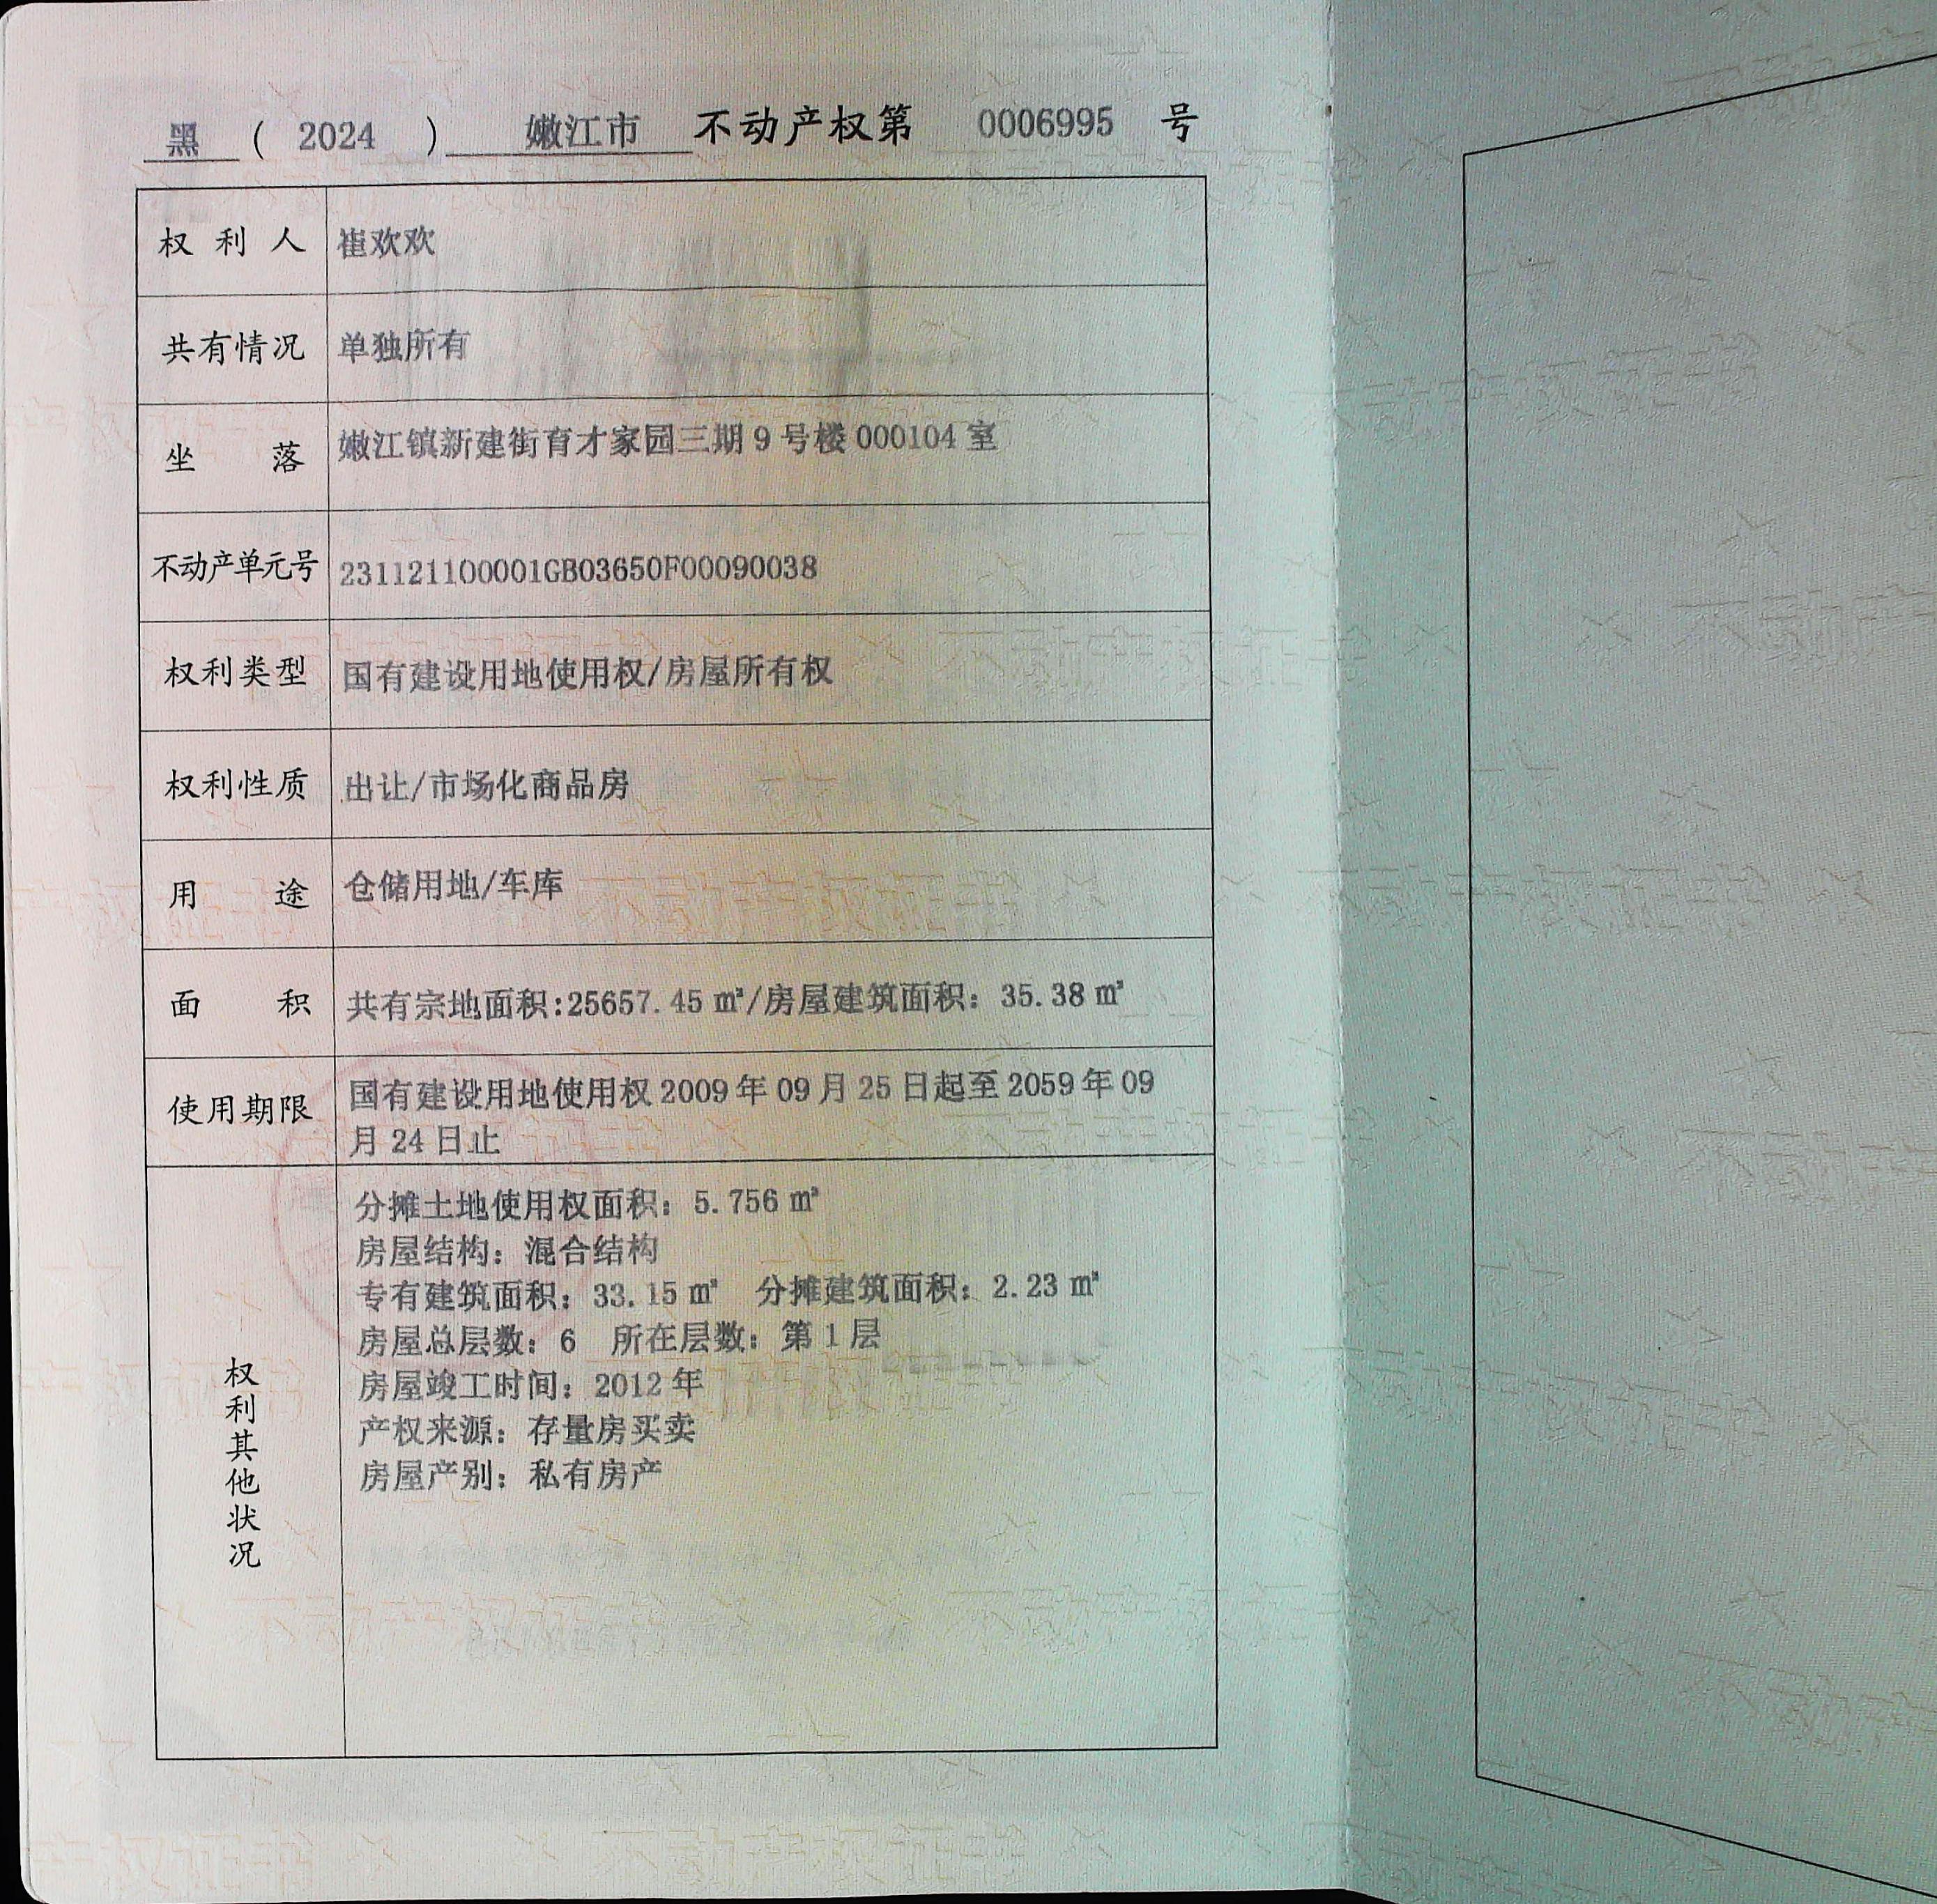 黑 ( 2024 ) 嫩江市 不动产权第 0006995 号
权利人 崔欢欢
共有情况 单独所有
坐落 嫩江镇新建街育才家园三期9号楼000104室
不动产单元号 231121100001GB03650F00090038
权利类型 国有建设用地使用权/房屋所有权
权利性质 出让/市场化商品房
用途 仓储用地/车库
面积 共有宗地面积:25657.45㎡/房屋建筑面积：35.38㎡
使用期限 国有建设用地使用权2009年09月25日起至2059年09
月24日止
权利其他状况
分摊土地使用权面积：5.756㎡
房屋结构：混合结构
专有建筑面积：33.15㎡ 分摊建筑面积：2.23㎡
房屋总层数：6 所在层数：第1层
房屋竣工时间：2012年
产权来源：存量房买卖
房屋产别：私有房产